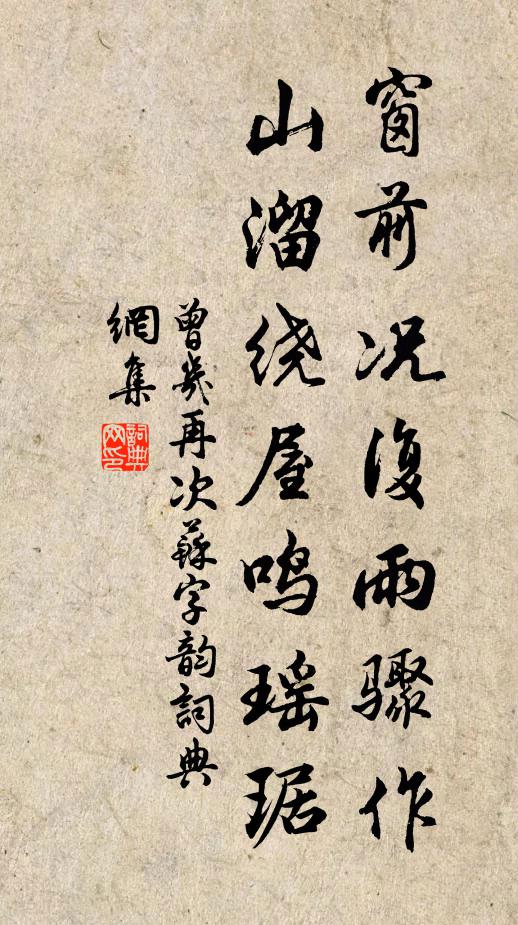 窗前况復雨驟作
山溜绕屋鸣瑶琚
曾幾再次蘇字韵詞典
網集
詞典网印